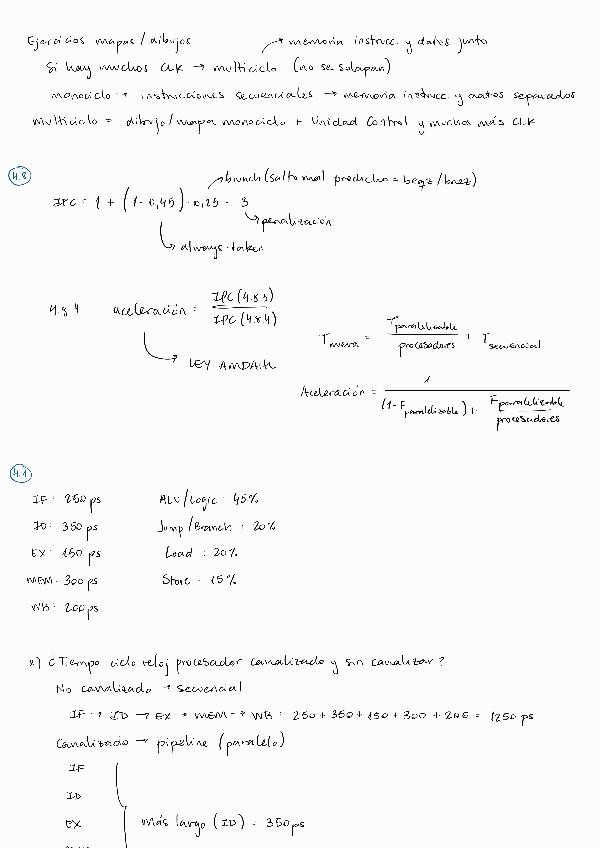 Ejercicios mapas / dibujos → memoria instrucc. y datos junto
Si hay muchos CLK → multiciclo (no se solapan)
monociclo → instrucciones secuenciales → memoria instrucc. y datos separados
multiciclo = dibujo/mapa monociclo + Unidad Control y muchos más CLK
4.8
branch (salto mal predicho = beqz / bnez)
IPC = 1 + (1 - 0,45) · 0,25 · 3
penalización
always-taken
4.8.4 aceleración = IPC (4.8.3) / IPC (4.8.4)
LEY AMDAHL
T nueva = T paralelizable / procesadores + T secuencial
Aceleración = 1 / (1 - F paralelizable) + F paralelizable / procesadores
4.1
IF: 250 ps ALU/Logic: 45%
ID: 350 ps Jump/Branch: 20%
EX: 150 ps Load: 20%
MEM: 300 ps Store: 15%
WB: 200 ps
¿Tiempo ciclo reloj procesador canalizado y sin canalizar?
No canalizado → secuencial
IF → ID → EX → MEM → WB: 250 + 350 + 150 + 300 + 200 = 1250 ps
Canalizado → pipeline (paralelo)
IF
ID
EX más largo (ID) = 350 ps